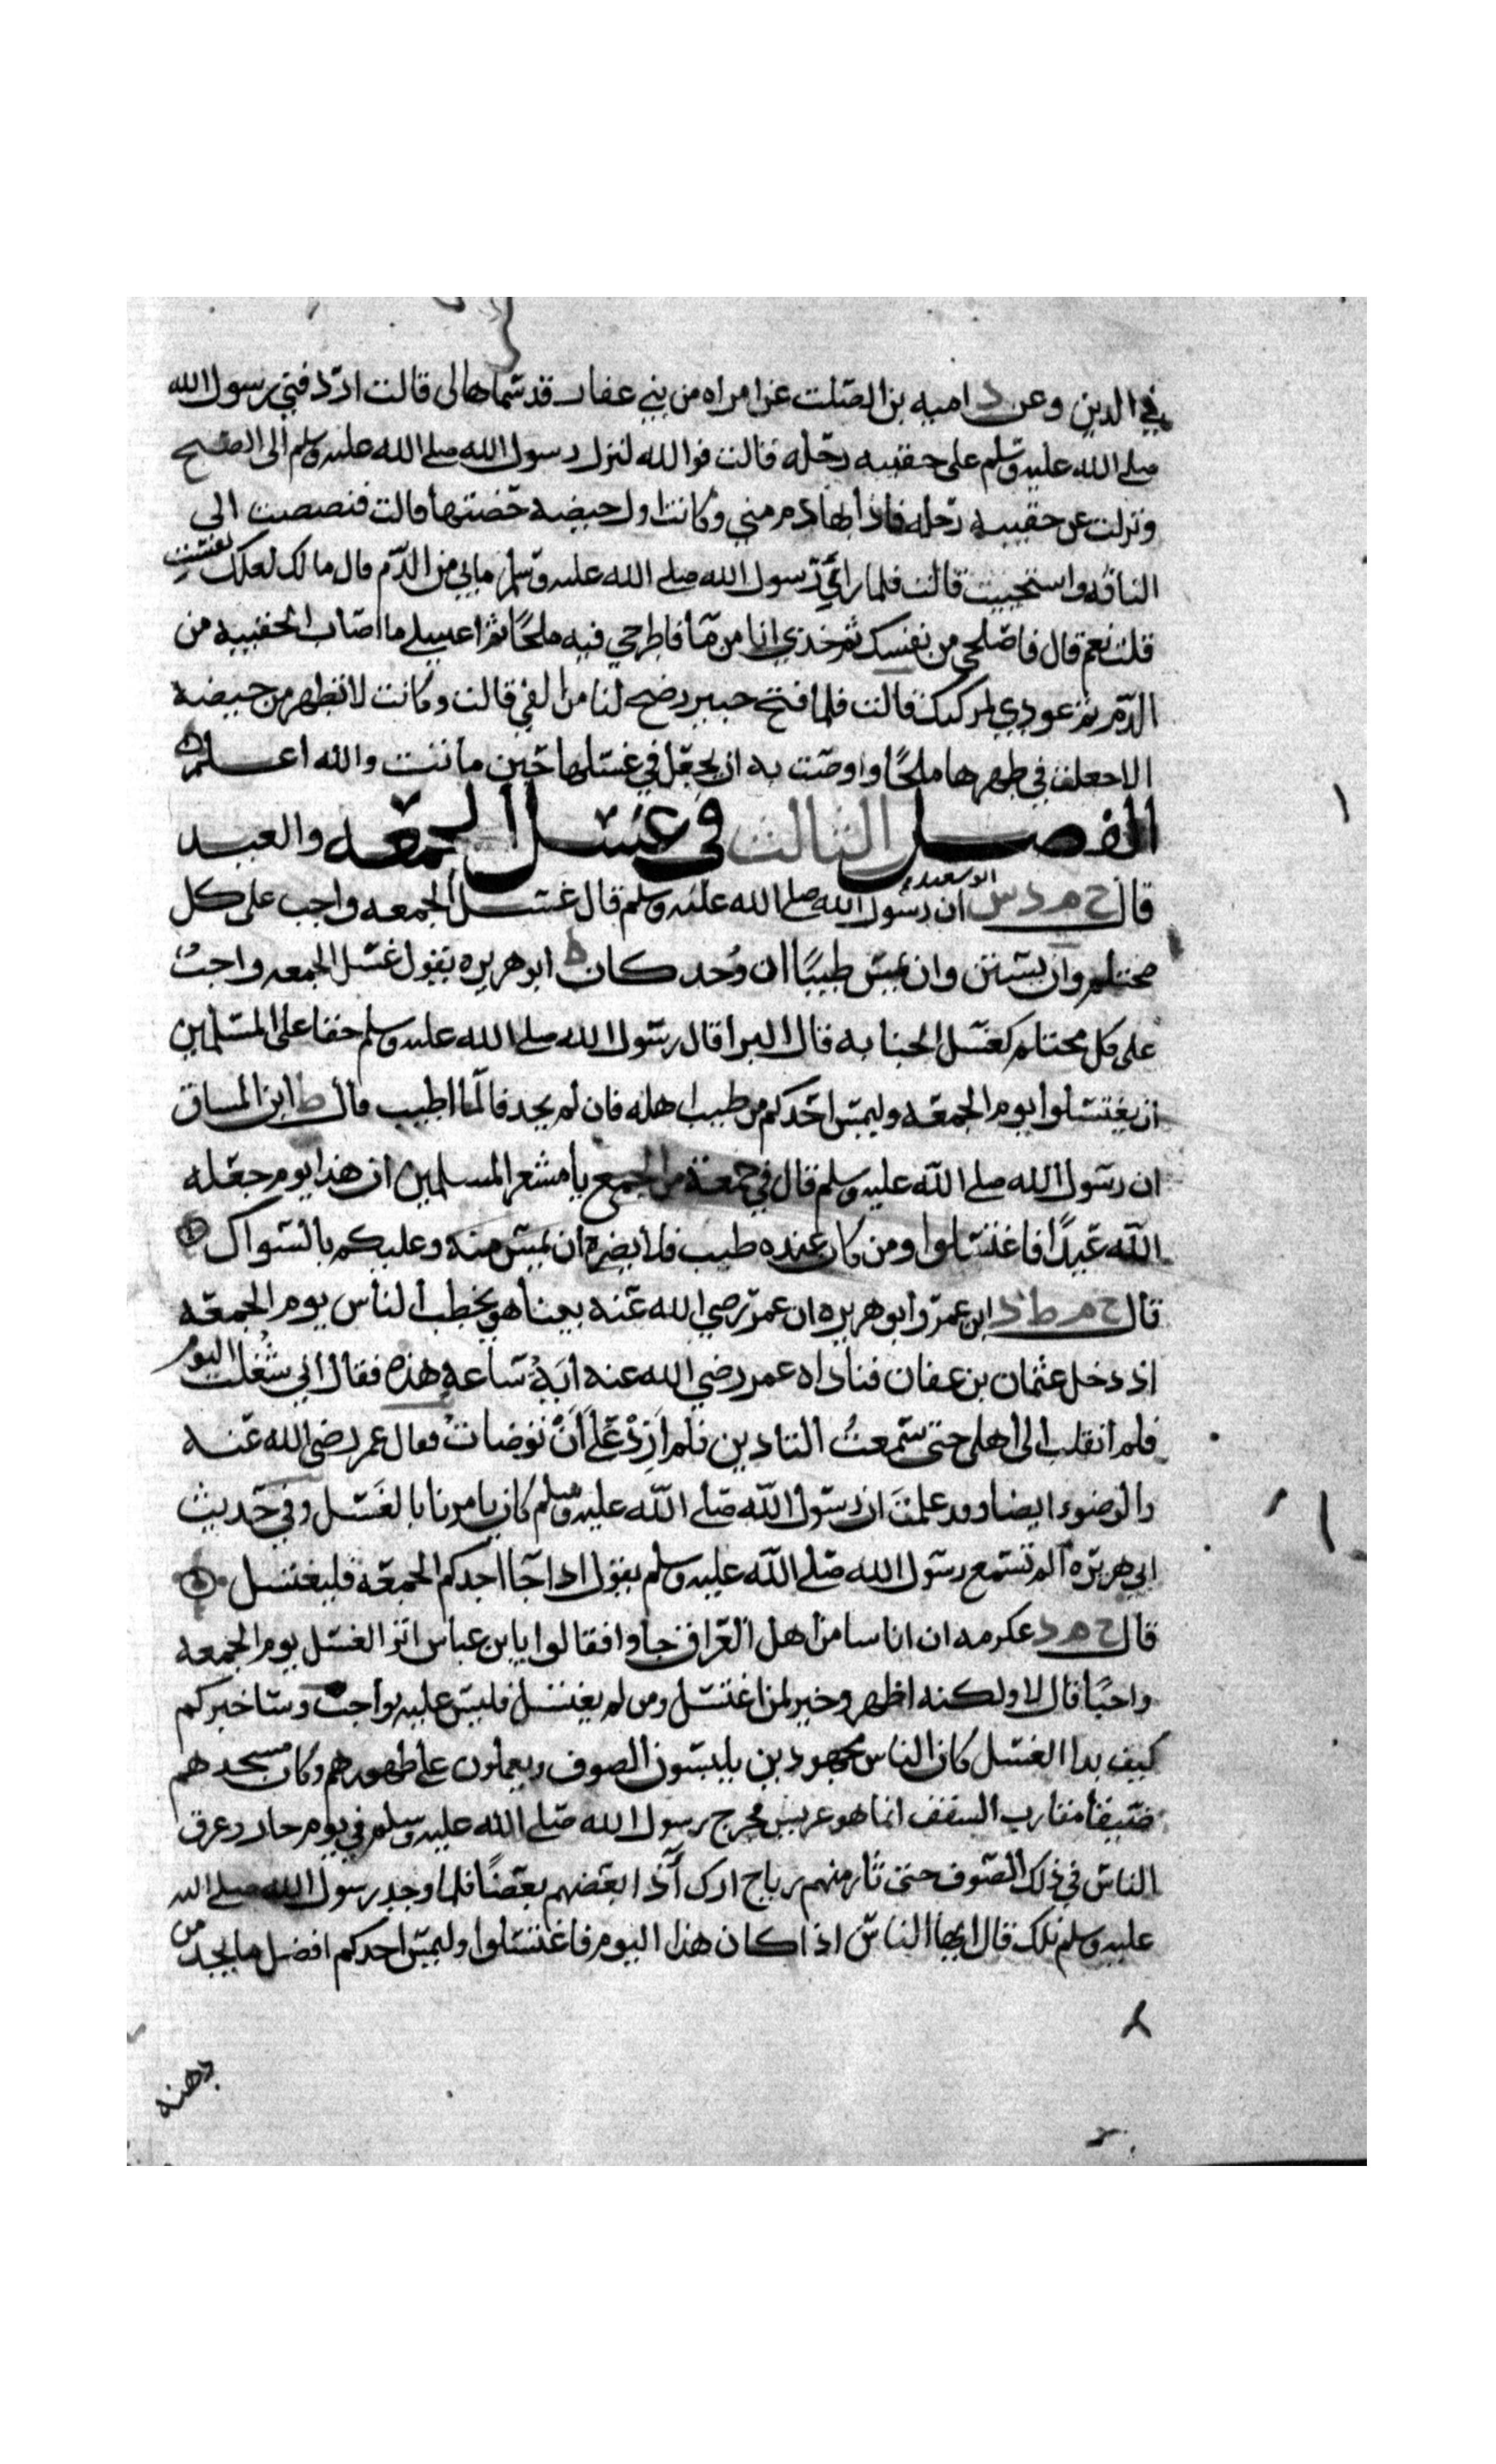 في الدين وعن د اميه بن الصلت عن امراه من بني غفار قد سماها لى قالت اردفني رسول الله
صلى الله عليه وسلم على حقيبه رحله قالت فوالله لنزل رسول الله صلى الله عليه وسلم الى الصبح
ونزلت عن حقيبه رحله فاذا بها دم مني وكانت اول حيضه حضتها قالت فتقبضت الى
الناقه واستحييت قالت فلما راى رسول الله صلى الله عليه وسلم ما بي من الدم قال مالك لعلك نفست
قلت نعم قال فاصلحي من نفسك ثم خذي انا من ما فاطرحي فيه ملحًا ثم اغسلي ما اصاب الحقيبه من
الدم ثم عودي لمركبك قالت فلما فتح خيبر رضح لنا من الفي قالت وكانت لا تطهر من حيضه
الا جعلت في طهرها ملحًا واوصت به ان يجعل في غسلها حين ماتت والله اعلم
الفصل الثالث في غسل الجمعه والعيد
قال خ م د س ابو سعيد ان رسول الله صلى الله عليه وسلم قال غسل الجمعه واجب على كل
محتلم وان يستن وان يمس طيبًا ان وُجد كان ط ابو هريره يقول غسل الجمعه واجبٌ
على كل محتلم كغسل الجنابه قال البرا قال رسول الله صلى الله عليه وسلم حقا على المسلمين
ان يغتسلوا يوم الجمعه وليمس احدكم من طيب اهله فان لم يجد فالما اطيب قال ط ابن المساق
ان رسول الله صلى الله عليه وسلم قال في جمعة من الجمع يا مشعر المسلمين ان هذا يوم جعله
الله عيدًا فاغتسلوا ومن كان عنده طيب فلا يضره ان يمس منه وعليكم بالسواك
قال خ م ط د ابن عمر وابو هريره ان عمر رضي الله عنه بينا هو يخطب الناس يوم الجمعه
اذ دخل عثمان بن عفان فناداه عمر رضي الله عنه ايةُ ساعةٍ هذه فقال اني شُغلت اليوم
فلم انقلب الى اهلى حتى سمعتُ التادين فلم ازِدْ على أنْ توضات فقال عمر رضي الله عنه
والوضوء ايضا وقد علمتَ ان رسول الله صلى الله عليه وسلم كان يامرنا بالغسل وفي حديث
ابي هريره الم تسمع رسول الله صلى الله عليه وسلم يقول اذا جا احدكم الجمعه فليغتسل
قال خ م د عكرمه ان اناسا من اهل العراق جاوا فقالوا يا بن عباس اتر الغسل يوم الجمعه
واجبًا قال لا ولكنه اطهر وخير لمن اغتسل ومن لم يغتسل فليس عليه بواجب وساخبركم
كيف بدا الغسل كان الناس مجهودين يلبسون الصوف ويعملون على ظهورهم وكان مسجدهم
ضيقًا مقارب السقف انما هو عريس فخرج رسول الله صلى الله عليه وسلم في يوم حار وعرق
الناس في ذلك الصوف حتى ثار منهم رياح اذى آذا بعضهم بعضًا فلما وجد رسول الله صلى الله
عليه وسلم تلك قال ايها الناس اذا كان هذا اليوم فاغتسلوا وليمس احدكم افضل ما يجد من
دهنه